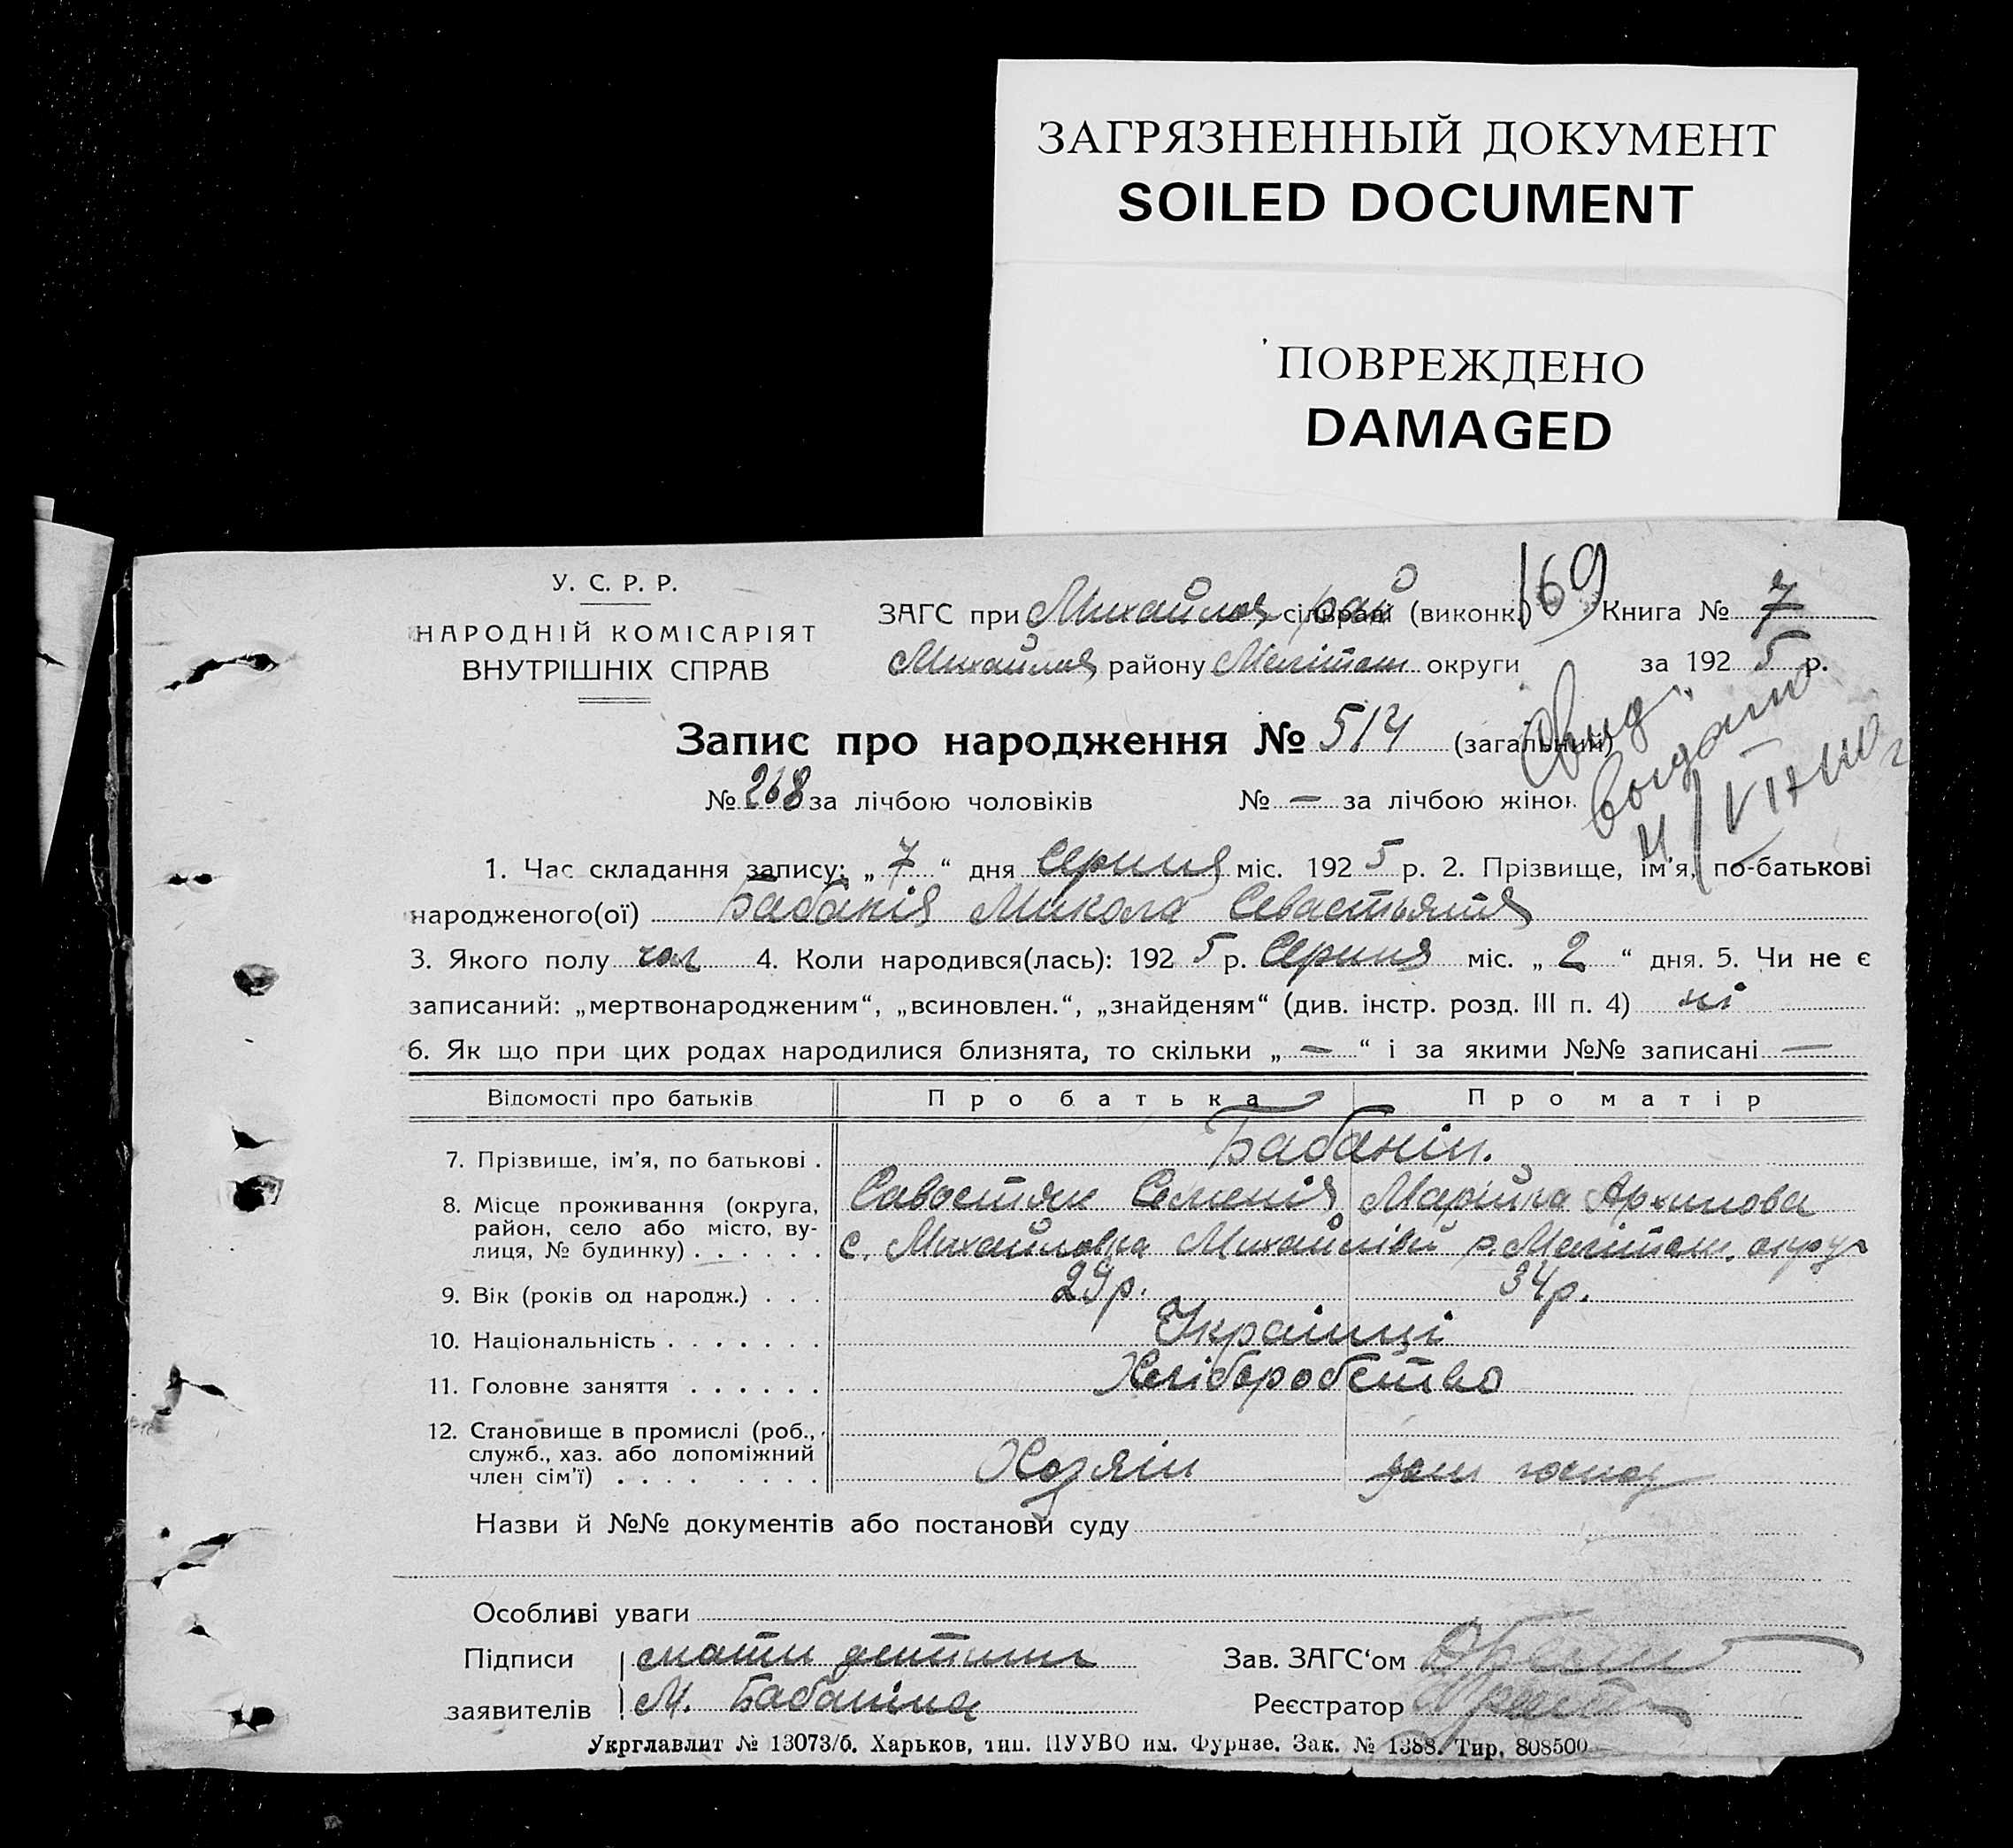 ЗАГРЯЗНЕННЫЙ ДОКУМЕНТ
SOILED DOCUMENT
ПОВРЕЖДЕНО
DAMAGED
У. С. Р. Р.
НАРОДНІЙ КОМІСАРІЯТ
ВНУТРІШНІХ СПРАВ
169
ЗАГС при Михайлов сільраді рай (виконк.) Книга № 7
Михайлов району Мелітоп округи за 192 5 р.
Запис про народження № 514 (загальний)
№ 268 за лічбою чоловіків № — за лічбою жінок
1. Час складання запису: „ 7 “ дня Серпня міс. 192 5 р. 2. Прізвище, ім’я, по-батькові
народженого(ої) Бабанін Микола Севастьянів
3. Якого полу чол 4. Коли народився(лась): 192 5 р. Серпня міс. „ 2 “ дня. 5. Чи не є
записаний: „мертвонародженим“, „всиновлен.“, „знайденям“ (див. інстр. розд. III п. 4) ні
6. Як що при цих родах народилися близнята, то скільки „ — “ і за якими №№ записані —
Відомості про батьків Про батька Про матір
7. Прізвище, ім’я, по батькові . Бабанін.
Савостян Семенів Марійка Архипова
8. Місце проживання (округа,
район, село або місто, ву-
лиця, № будинку) . . . . . . с. Михайловка Михайлівск р. Мелітоп. округ
9. Вік (років од народж.) . . . 29 р. 34 р.
10. Національність . . . . . . . Українці
11. Головне заняття . . . . . . Хліборобство
12. Становище в промислі (роб.,
служб., хаз. або допоміжний
член сім’ї) . . . . . . . . . Хозяін дом господ
Назви й №№ документів або постанови суду
Особливі уваги
Підписи мати дитини Зав. ЗАГС‘ом
заявителів М. Бабаніна Реєстратор
Укрглавлит № 13073/б. Харьков, тип. ПУУВО им. Фурнзе. Зак. № 1388. Тир. 808500